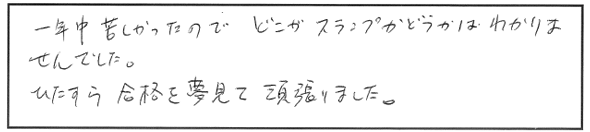 一年中苦しかったので どこが スランプかどうかは わかりま
せんでした。
ひたすら 合格を夢見て 頑張りました。